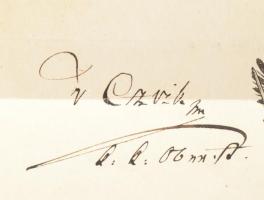 v Czvik
k. k. Obrst.